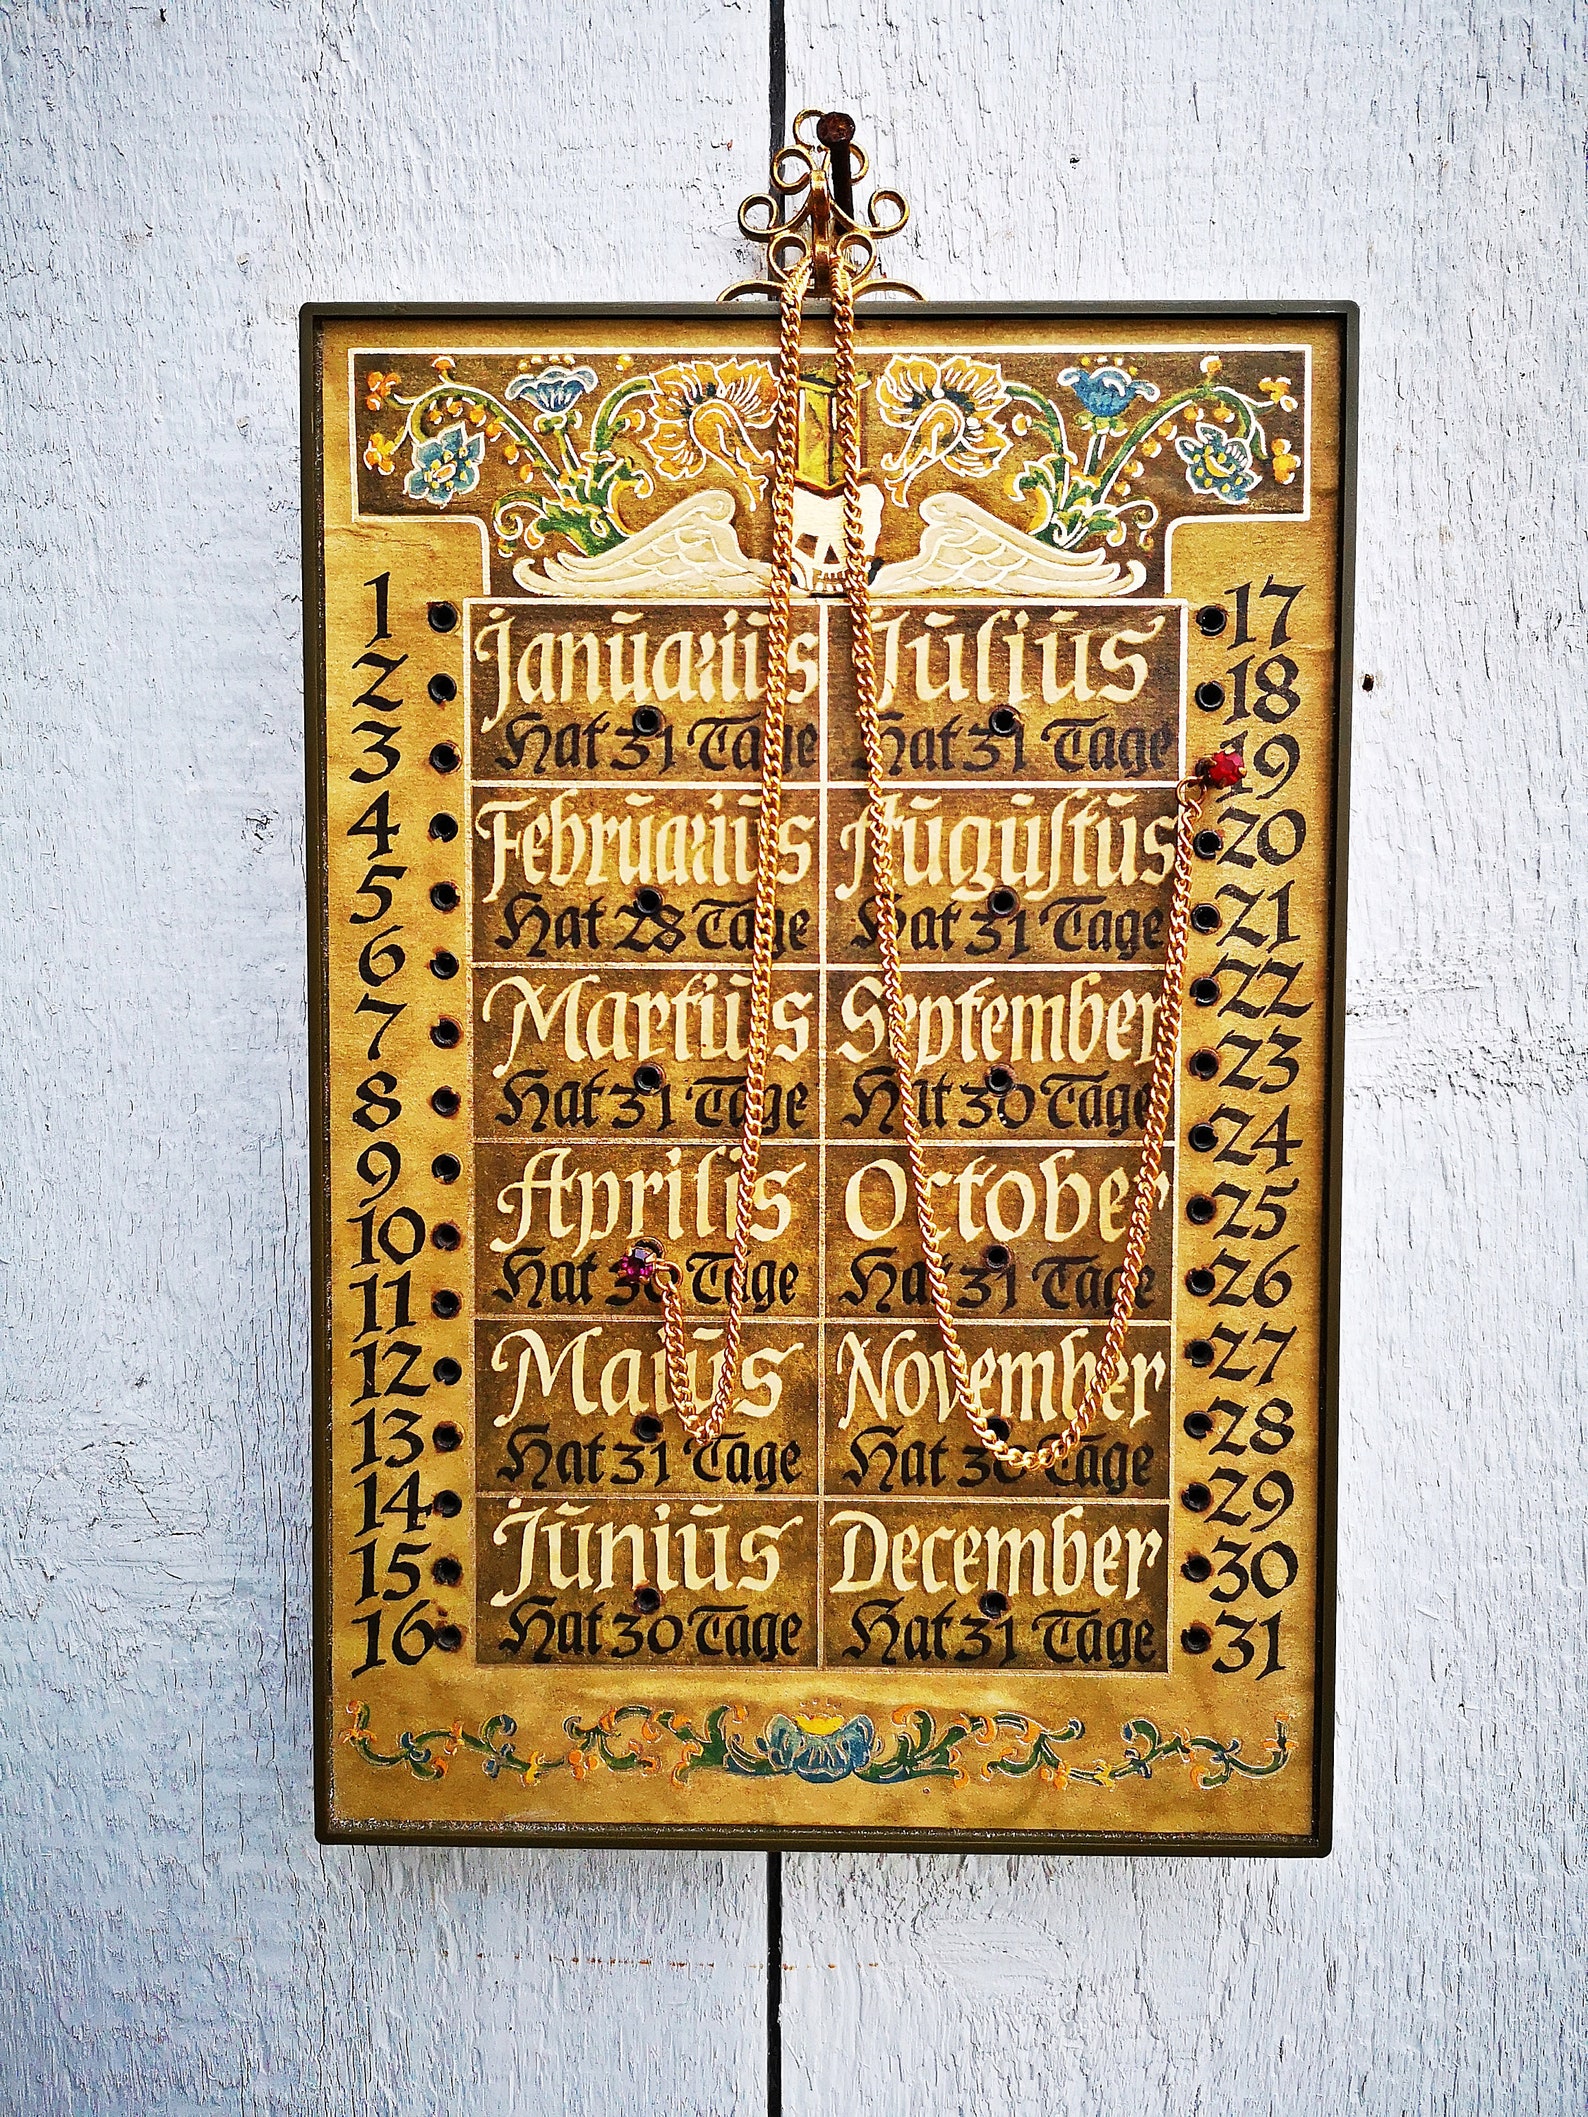 1
2
3
4
5
6
7
8
9
10
11
12
13
14
15
16
Januarius
Hat 31 Tage
Februarius
Hat 28 Tage
Martius
Hat 31 Tage
Aprilis
Hat 30 Tage
Maius
Hat 31 Tage
Junius
Hat 30 Tage
Julius
Hat 31 Tage
Augustus
Hat 31 Tage
September
Hat 30 Tage
October
Hat 31 Tage
November
Hat 30 Tage
December
Hat 31 Tage
17
18
19
20
21
22
23
24
25
26
27
28
29
30
31